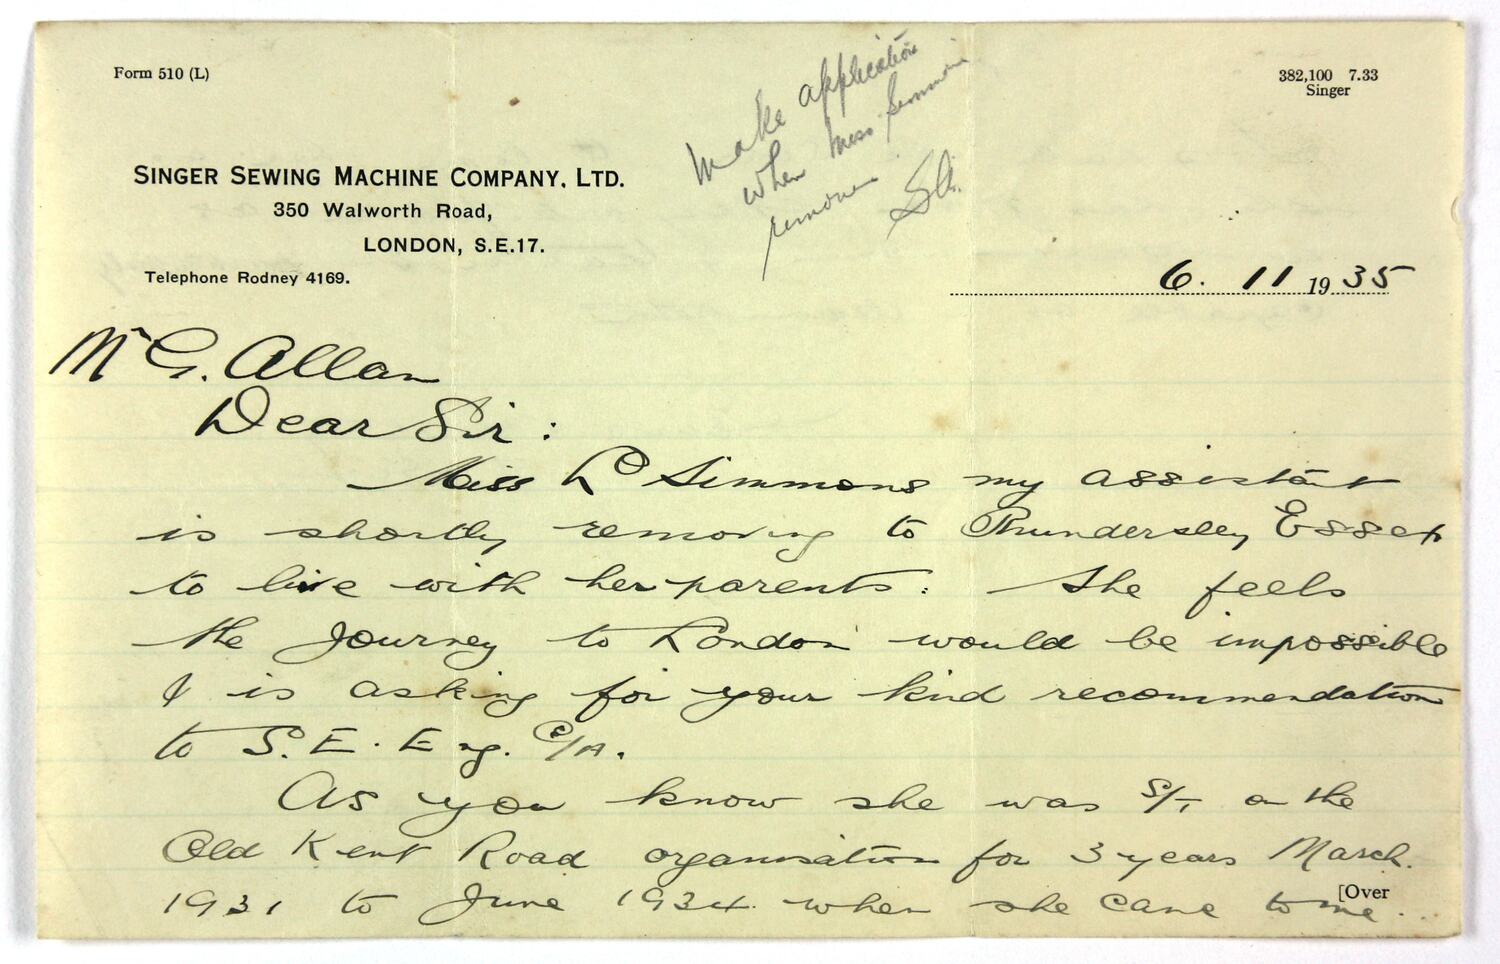 Form 510 (L)
382,100 7.33
Singer
Make application
when Miss Simmons
removes
SINGER SEWING MACHINE COMPANY, LTD.
350 Walworth Road,
LONDON, S.E.17.
Telephone Rodney 4169.
6. 11 1935
Mr G. Allan
Dear Sir:
Miss L Simmons my assistant
is shortly removing to Thundersley Essex
to live with her parents: She feels
the journey to London would be impossible
& is asking for your kind recommendation
to S.E. Eng. C/A.
As you know she was S/T on the
Old Kent Road organisation for 3 years March
1931 to June 1934 when she came to me..
[Over